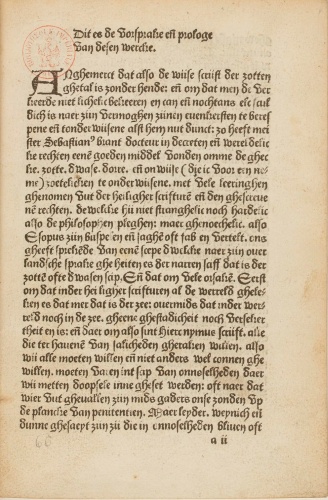 Dit es de vorsprake eñ prologe
van desen wercke.
ANghemerct dat also de wiise scriift der zotten
ghetal is zonder hende: eñ om dat men de ver
keerde niet lichelic bekeeren en can eñ nochtans elc sculdich
dich is naer ziin vermoghen ziinen evenkersten te beris
pene eñ tonderwiisene alst hem nut dunct: zo heeft mei
ster Sebastian⁹ brant docteur in decreten eñ wereldelic
ke rechten eene goeden middel vonden omme de ghec
ke. zotte. dwase. dorre. eñ onwiise (die ic voor een ne
me) zoetelicken te onderwiisene. met vele leeringhen
ghenomen vut der heiligher scriftuere eñ den ghescreve
nen rechten. de welcke hii niet stranghelic noch hardelic
also de philosophen pleghen: maer ghenoechelic. also
Esopus ziin busspelen eñ iaghē oft fab
len vertelt. ens
gheeft sprekēde van eenē scepe dwelcke naer ziin over
landsche sprake ghe heeten es der narren scaff dat is der
zottē ofte dwasen scip. Eñ dat om vele orsakē. Eerst
om dat inder heiligher scrifturen al de werelt gheleken
ken es dat mer dat is der zee: overmids dat inder wer
relt noch in de zee. gheene ghestadicheit noch verseker
theit en is: eñ daer om also sint Hieronymus scriift. alle
die ter havene van salicheden gheraken willen. also
wii alle moeten willen eñ niet anders wel connen ghe
willen. moeten varen int scip van onnoselheden daer
wii metten doopsele inne gheset werden: oft naer dat
wier vut ghevallen ziin mids gaders onse zonden vp
de plancke van penitentien. Maer leyder. weynich eñ
dunne ghesaeyt ziin zii die in onnoselheden bliven oft
a ii